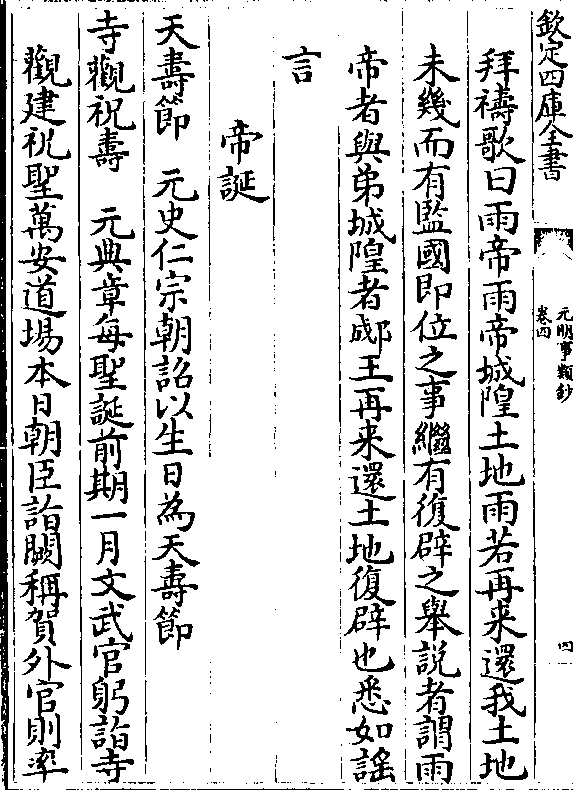 欽定四庫全書
元明事類鈔
卷四
四
拜禱歌曰雨帝雨帝城隍土地雨若再来還我土地
未幾而有監國即位之事繼有復辟之舉說者謂雨
帝者與弟城隍者郕王再来還土地復辟也悉如謡
言
帝誕
天壽節　元史仁宗朝詔以生日為天壽節
寺觀祝壽　元典章每聖誕前期一月文武官躬詣寺
觀建祝聖萬安道場本日朝臣詣闕稱賀外官則率